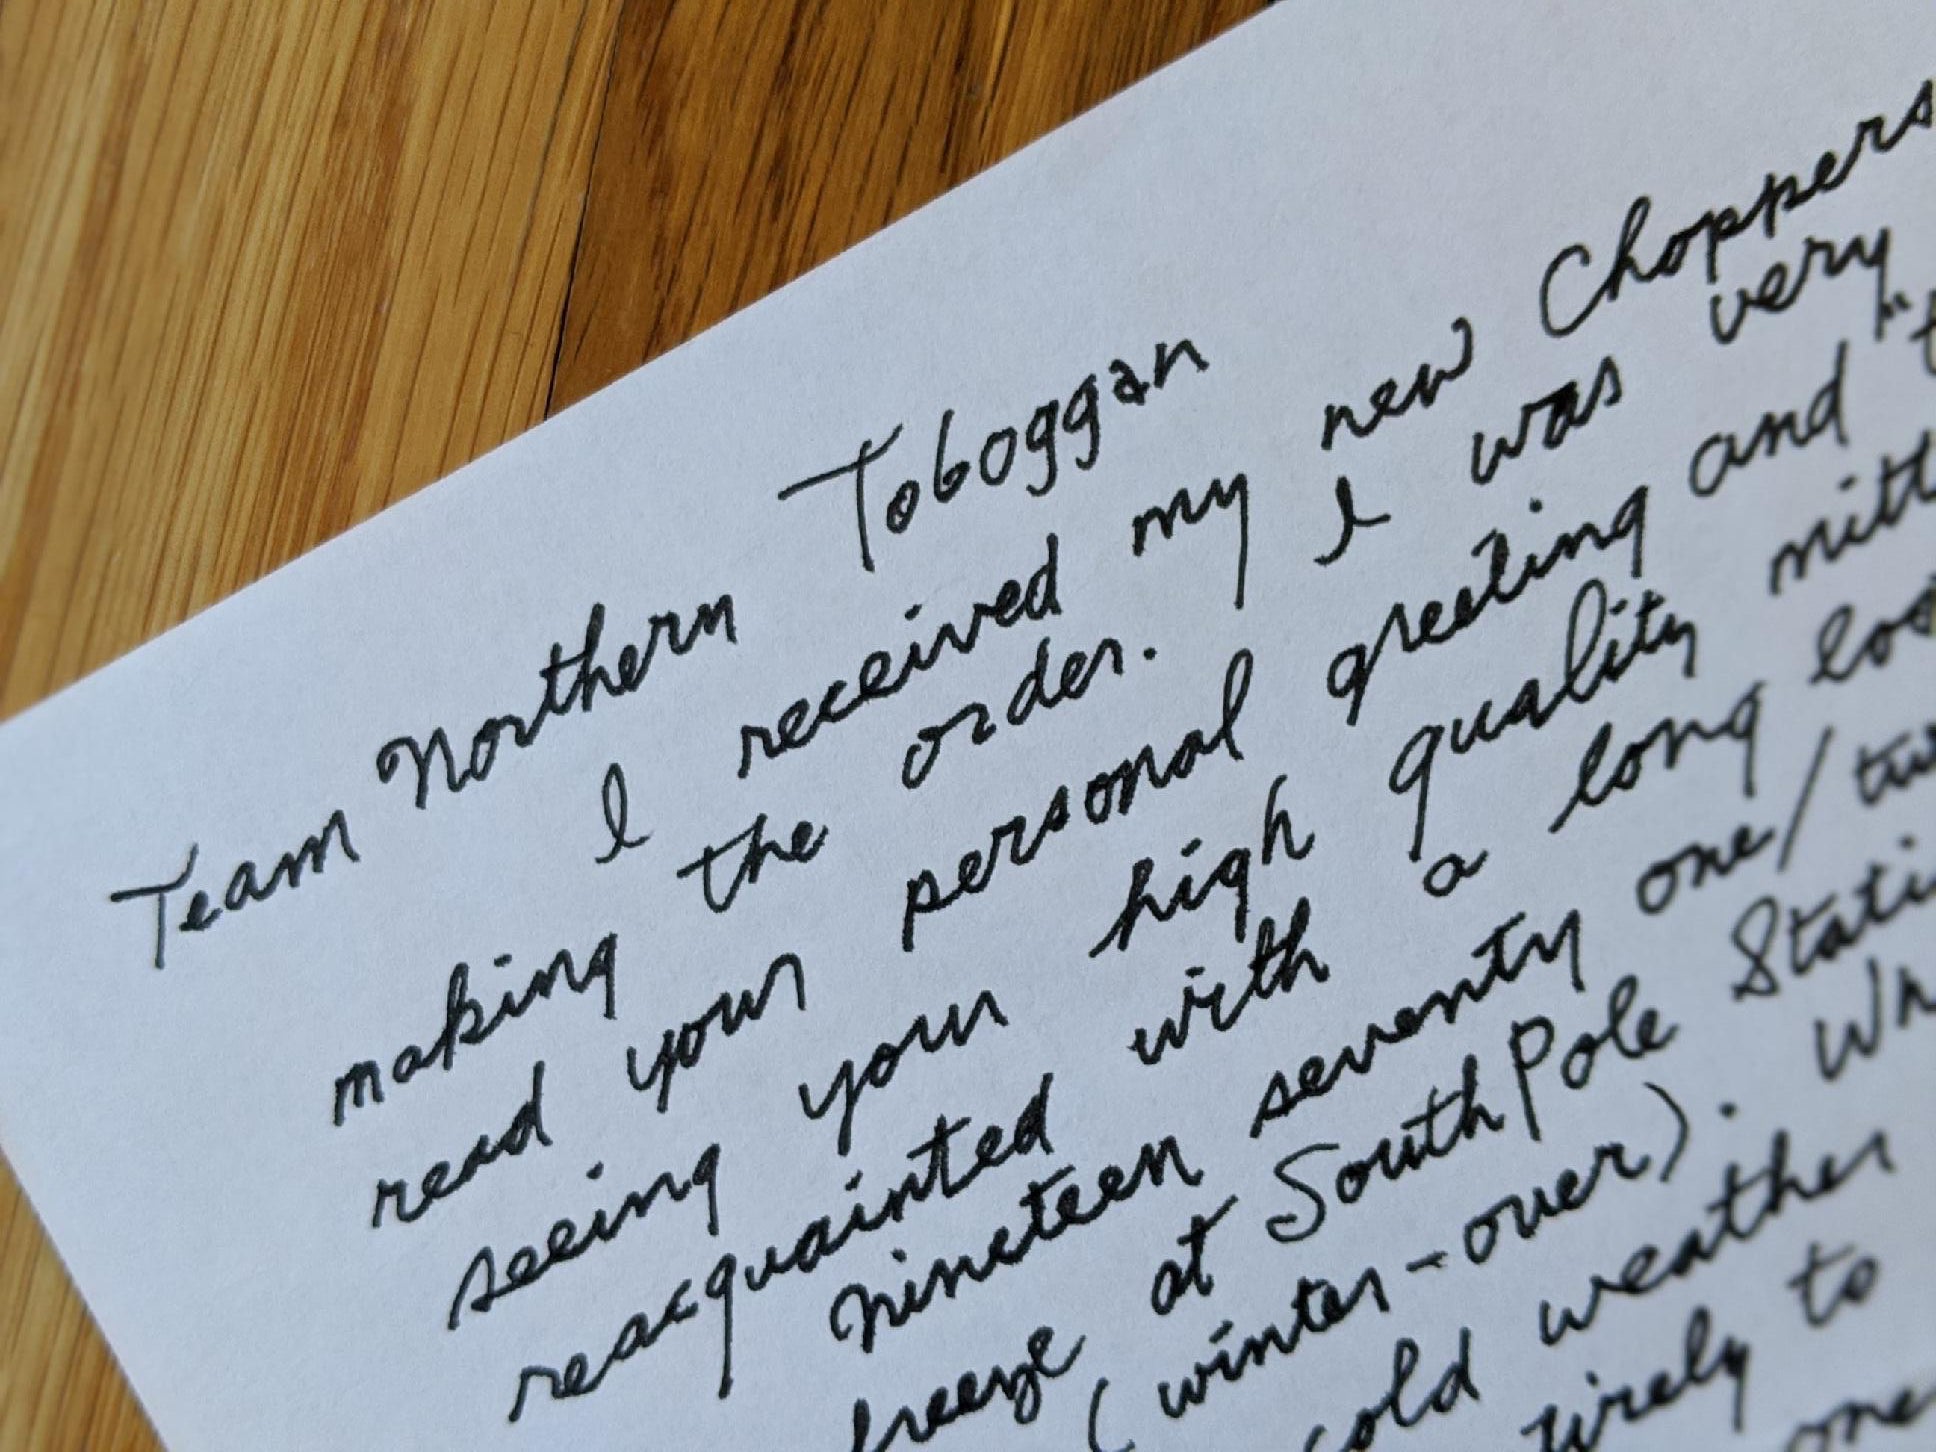 Team Northern Toboggan
I received my new Choppers
making the order. I was very
read your personal greeting and "t
seeing your high quality mitt
reacquainted with a long los
Nineteen seventy one/tw
freeze at South Pole Stati
(winter-over). Wh
cold weather
tirely to
one